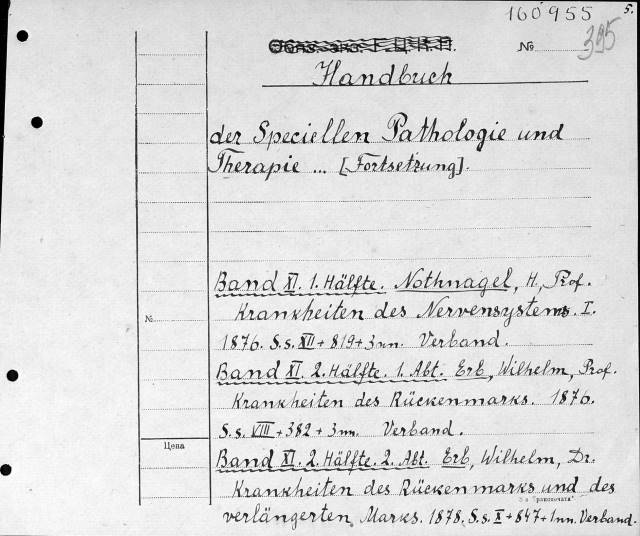 160955
5.
№ 395
Handbuch
der Speciellen Pathologie und
Therapie ... [Fortsetzung].
Band XI. 1. Hälfte. Nothnagel, H., Prof.
Krankheiten des Nervensystems. I.
№
1876. S.s. XII + 819 + 3 nn. Verband.
Band XI. 2. Hälfte. 1. Abt. Erb, Wilhelm, Prof.
Krankheiten des Rückenmarks. 1876.
S.s. VIII + 382 + 3 nn. Verband.
Цена
Band XI. 2. Hälfte. 2. Abt. Erb, Wilhelm, Dr.
Krankheiten des Rückenmarks und des
verlängerten Marks. 1878. S.s. X + 847 + 1 nn. Verband.